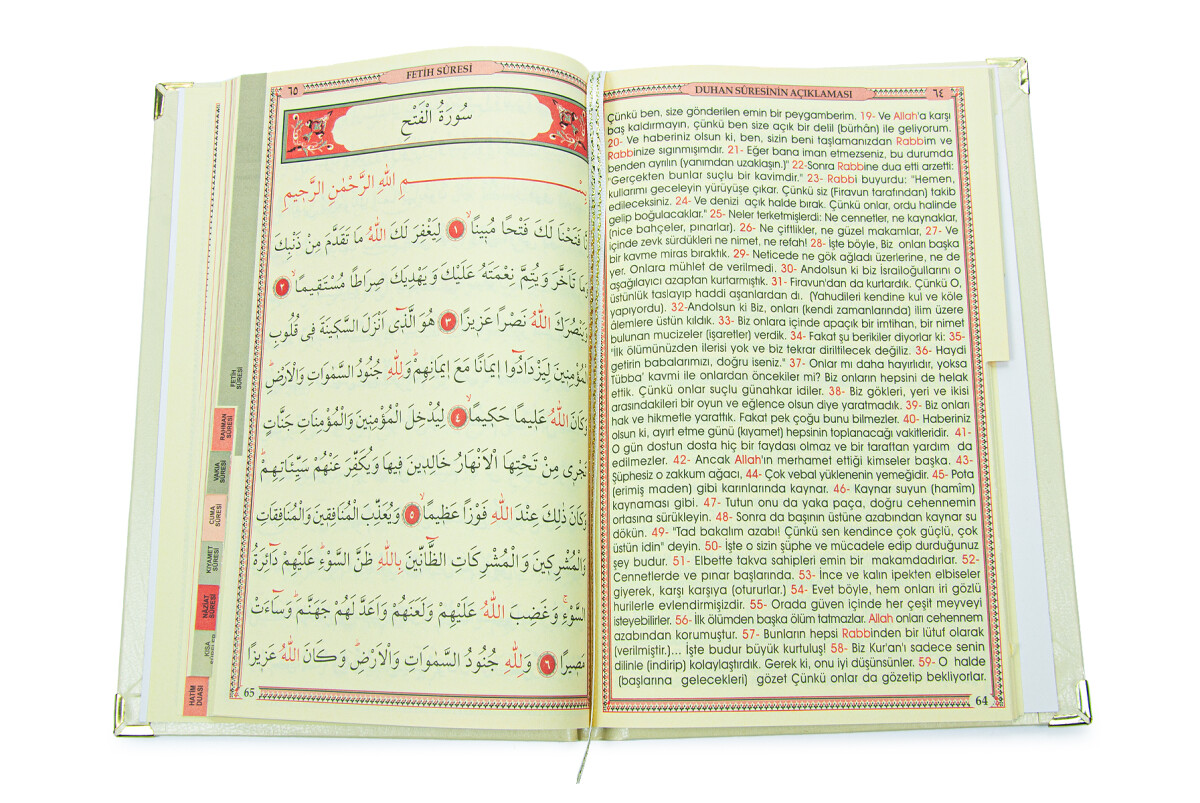 DUHAN SÛRESİNİN AÇIKLAMASI
٦٤
Çünkü ben, size gönderilen emin bir peygamberim. 19- Ve Allah'a karşı
baş kaldırmayın, çünkü ben size açık bir delil (bürhân) ile geliyorum.
20- Ve haberiniz olsun ki, ben, sizin beni taşlamanızdan Rabbim ve
Rabbinize sıgınmışımdır. 21- Eğer bana iman etmezseniz, bu durumda
benden ayrılın (yanımdan uzaklaşın." 22-Sonra Rabbine dua etti arzetti:
"Gerçekten bunlar suçlu bir kavimdir." 23- Rabbi buyurdu: "Hemen,
kullarımı geceleyin yürüyüşe çıkar. Çünkü siz (Firavun tarafından) takib
edileceksiniz. 24- Ve denizi açık halde bırak. Çünkü onlar, ordu halinde
gelip boğulacaklar." 25- Neler terketmişlerdi: Ne cennetler, ne kaynaklar,
(nice bahçeler, pınarlar). 26- Ne çiftlikler, ne güzel makamlar, 27- Ve
içinde zevk sürdükleri ne nimet, ne refah! 28- İşte böyle, Biz onları başka
bir kavme miras bıraktık. 29- Neticede ne gök ağladı üzerlerine, ne de
yer. Onlara mühlet de verilmedi. 30- Andolsun ki biz İsrailoğullarını o
aşağılayıcı azaptan kurtarmıştık. 31- Firavun'dan da kurtardık. Çünkü O,
üstünlük taslayıp haddi aşanlardan dı. (Yahudileri kendine kul ve köle
yapıyordu). 32-Andolsun ki Biz, onları (kendi zamanlarında) ilim üzere
âlemlere üstün kıldık. 33- Biz onlara içinde apaçık bir imtihan, bir nimet
bulunan mucizeler (işaretler) verdik. 34- Fakat şu berikiler diyorlar ki: 35-
"İlk ölümünüzden ilerisi yok ve biz tekrar diriltilecek değiliz. 36- Haydi
getirin babalarımızı, doğru iseniz." 37- Onlar mı daha hayırlıdır, yoksa
Tübba' kavmi ile onlardan öncekiler mi? Biz onların hepsini de helak
ettik. Çünkü onlar suçlu günahkar idiler. 38- Biz gökleri, yeri ve ikisi
arasındakileri bir oyun ve eğlence olsun diye yaratmadık. 39- Biz onları
hak ve hikmetle yarattık. Fakat pek çoğu bunu bilmezler. 40- Haberiniz
olsun ki, ayırt etme günü (kıyamet) hepsinin toplanacağı vakitleridir. 41-
O gün dostun dosta hiç bir faydası olmaz ve bir taraftan yardım da
edilmezler. 42- Ancak Allah'ın merhamet ettiği kimseler başka. 43-
Şüphesiz o zakkum ağacı, 44- Çok vebal yüklenenin yemeğidir. 45- Pota
(erimiş maden) gibi karınlarında kaynar. 46- Kaynar suyun (hamîm)
kaynaması gibi. 47- Tutun onu da yaka paça, doğru cehennemin
ortasına sürükleyin. 48- Sonra da başının üstüne azabından kaynar su
dökün. 49- "Tad bakalım azabı! Çünkü sen kendince çok güçlü, çok
üstün idin" deyin. 50- İşte o sizin şüphe ve mücadele edip durduğunuz
şey budur. 51- Elbette takva sahipleri emin bir makamdadırlar. 52-
Cennetlerde ve pınar başlarında. 53- İnce ve kalın ipekten elbiseler
giyerek, karşı karşıya (otururlar.) 54- Evet böyle, hem onları iri gözlü
hurilerle evlendirmişizdir. 55- Orada güven içinde her çeşit meyveyi
isteyebilirler. 56- İlk ölümden başka ölüm tatmazlar. Allah onları cehennem
azabından korumuştur. 57- Bunların hepsi Rabbinden bir lütuf olarak
(verilmiştir.)... İşte budur büyük kurtuluş! 58- Biz Kur'an'ı sadece senin
dilinle (indirip) kolaylaştırdık. Gerek ki, onu iyi düşünsünler. 59- O halde
(başlarına gelecekleri) gözet Çünkü onlar da gözetip bekliyorlar.
64
FETİH SÛRESİ
٦٥
سُورَةُ الْفَتْحِ
بِسْــــمِ اللّٰهِ الرَّحْمٰنِ الرَّحٖيمِ
نَّا فَتَحْنَا لَكَ فَتْحًا مُبٖينًاۙ ١ لِيَغْفِرَ لَكَ اللّٰهُ مَا تَقَدَّمَ مِنْ ذَنْبِكَ
وَمَا تَاَخَّرَ وَيُتِمَّ نِعْمَتَهُ عَلَيْكَ وَيَهْدِيَكَ صِرَاطًا مُسْتَقٖيمًاۙ ٢
وَيَنْصُرَكَ اللّٰهُ نَصْرًا عَزٖيزًا ٣ هُوَ الَّذٖٓى اَنْزَلَ السَّكٖينَةَ فٖى قُلُوبِ
الْمُؤْمِنٖينَ لِيَزْدَادُٓوا اٖيمَانًا مَعَ اٖيمَانِهِمْؕ وَلِلّٰهِ جُنُودُ السَّمٰوَاتِ وَالْاَرْضِؕ
وَكَانَ اللّٰهُ عَلٖيمًا حَكٖيمًاۙ ٤ لِيُدْخِلَ الْمُؤْمِنٖينَ وَالْمُؤْمِنَاتِ جَنَّاتٍ
تَجْرٖى مِنْ تَحْتِهَا الْاَنْهَارُ خَالِدٖينَ فٖيهَا وَيُكَفِّرَ عَنْهُمْ سَيِّـَٔاتِهِمْؕ
وَكَانَ ذٰلِكَ عِنْدَ اللّٰهِ فَوْزًا عَظٖيمًاۙ ٥ وَيُعَذِّبَ الْمُنَافِقٖينَ وَالْمُنَافِقَاتِ
وَالْمُشْرِكٖينَ وَالْمُشْرِكَاتِ الظَّٓانّٖينَ بِاللّٰهِ ظَنَّ السَّوْءِؕ عَلَيْهِمْ دَٓائِرَةُ
السَّوْءِۚ وَغَضِبَ اللّٰهُ عَلَيْهِمْ وَلَعَنَهُمْ وَاَعَدَّ لَهُمْ جَهَنَّمَؕ وَسَٓاءَتْ
مَصٖيرًا ٦ وَلِلّٰهِ جُنُودُ السَّمٰوَاتِ وَالْاَرْضِؕ وَكَانَ اللّٰهُ عَزٖيزًا
65
FETİH
SÛRESİ
RAHMAN
SÛRESİ
VAKIA
SÛRESİ
CUMA
SÛRESİ
KIYAMET
SÛRESİ
NAZİAT
SÛRESİ
KISA
HATİM
DUASI